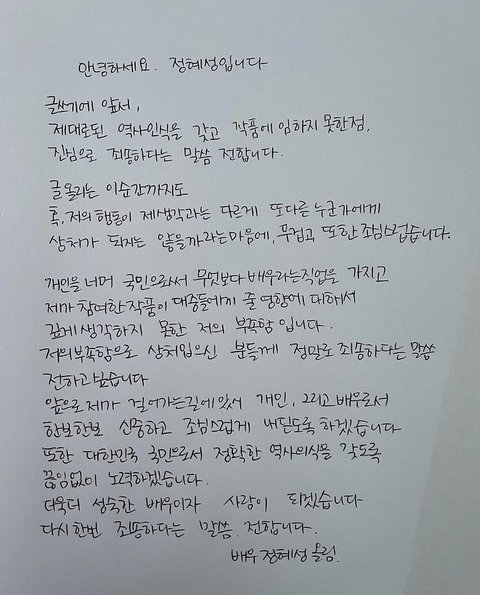 안녕하세요. 정혜성입니다
글쓰기에 앞서,
제대로된 역사인식을 갖고 작품에 임하지 못한점,
진심으로 죄송하다는 말씀 전합니다.
글올리는 이순간까지도
혹, 저의 행동이 제생각과는 다르게 또다른 누군가에게
상처가 되지는 않을까라는마음에, 무겁고 또한 조심스럽습니다.
개인을 너머 국민으로서 무엇보다 배우라는직업을 가지고
제가 참여한 작품이 대중들에게 줄 영향에 대해서
깊게 생각하지 못한 저의 부족함 입니다.
저의부족함으로 상처입으신 분들께 정말로 죄송하다는 말씀
전하고 싶습니다
앞으로 제가 걸어가는길에있어 개인, 그리고 배우로서
한보한보 신중하고 조심스럽게 내딛도록 하겠습니다
또한 대한민국 국민으로서 정확한 역사의식을 갖도록
끊임없이 노력하겠습니다.
더욱더 성숙한 배우이자 사람이 되겠습니다
다시한번 죄송하다는 말씀. 전합니다.
배우 정혜성 올림.